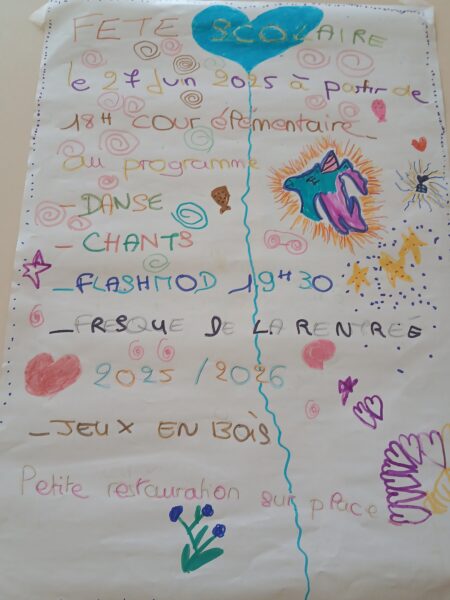 FETE SCOLAIRE
le 27 Juin 2025 à partir de
18H COUR élémentaire_
au programme
- DANSE
- CHANTS
_ FLASHMOD 19H30
_ FRESQUE DE LA RENTREE
2025 / 2026
_ JEUX EN BOIS
Petite restauration sur place